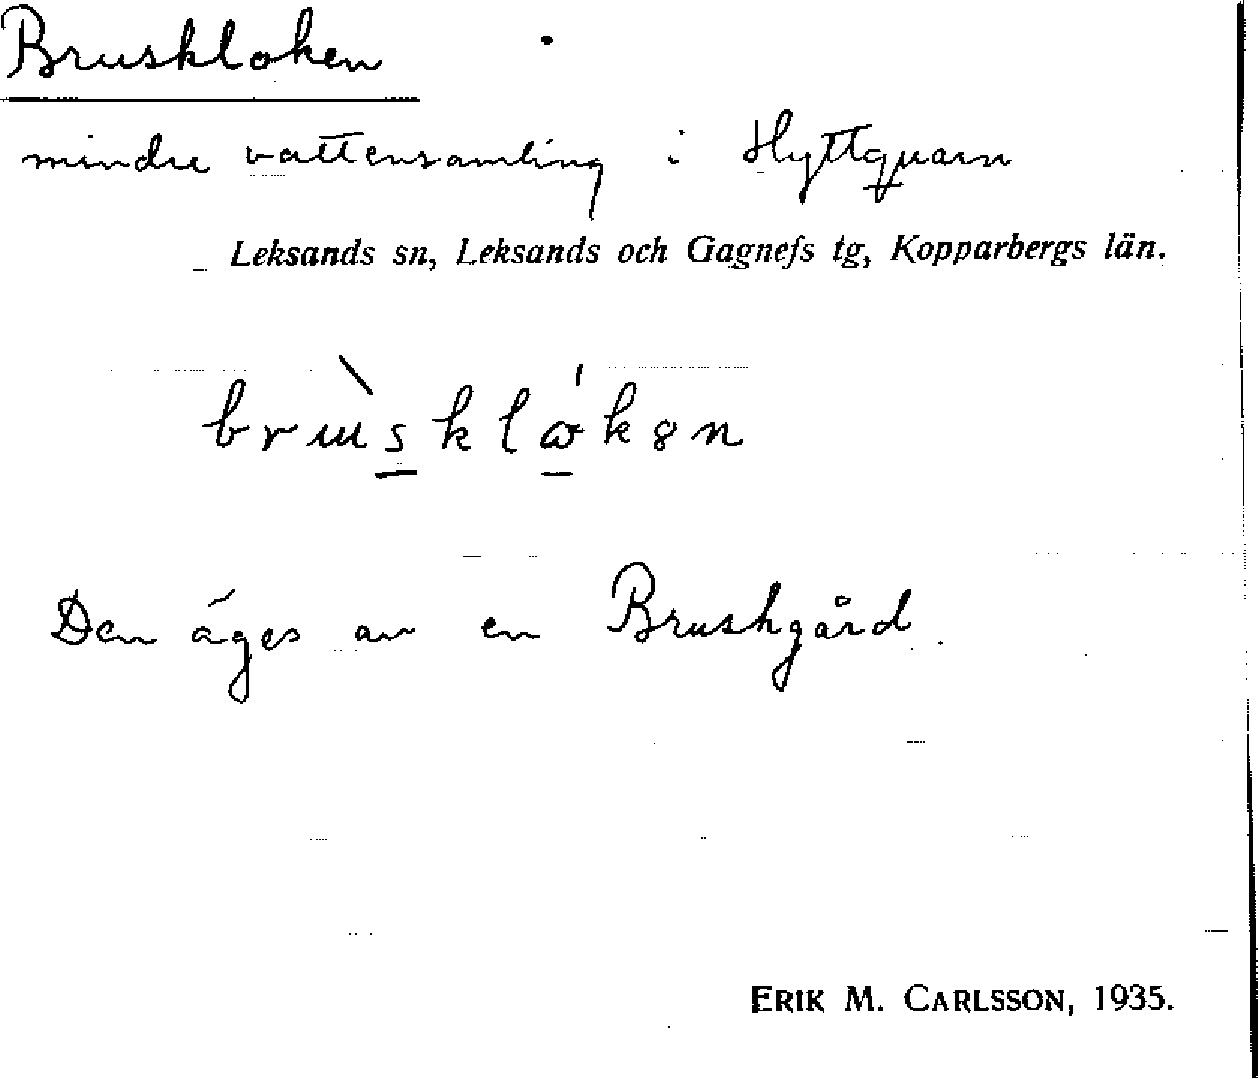 Bruskloken
mindre vattensamling i Hyttquarn
Leksands sn, Leksands och Gagnefs tg, Kopparbergs län.
Den äges av en Bruskgård.
ERIK M. CARLSSON, 1935.